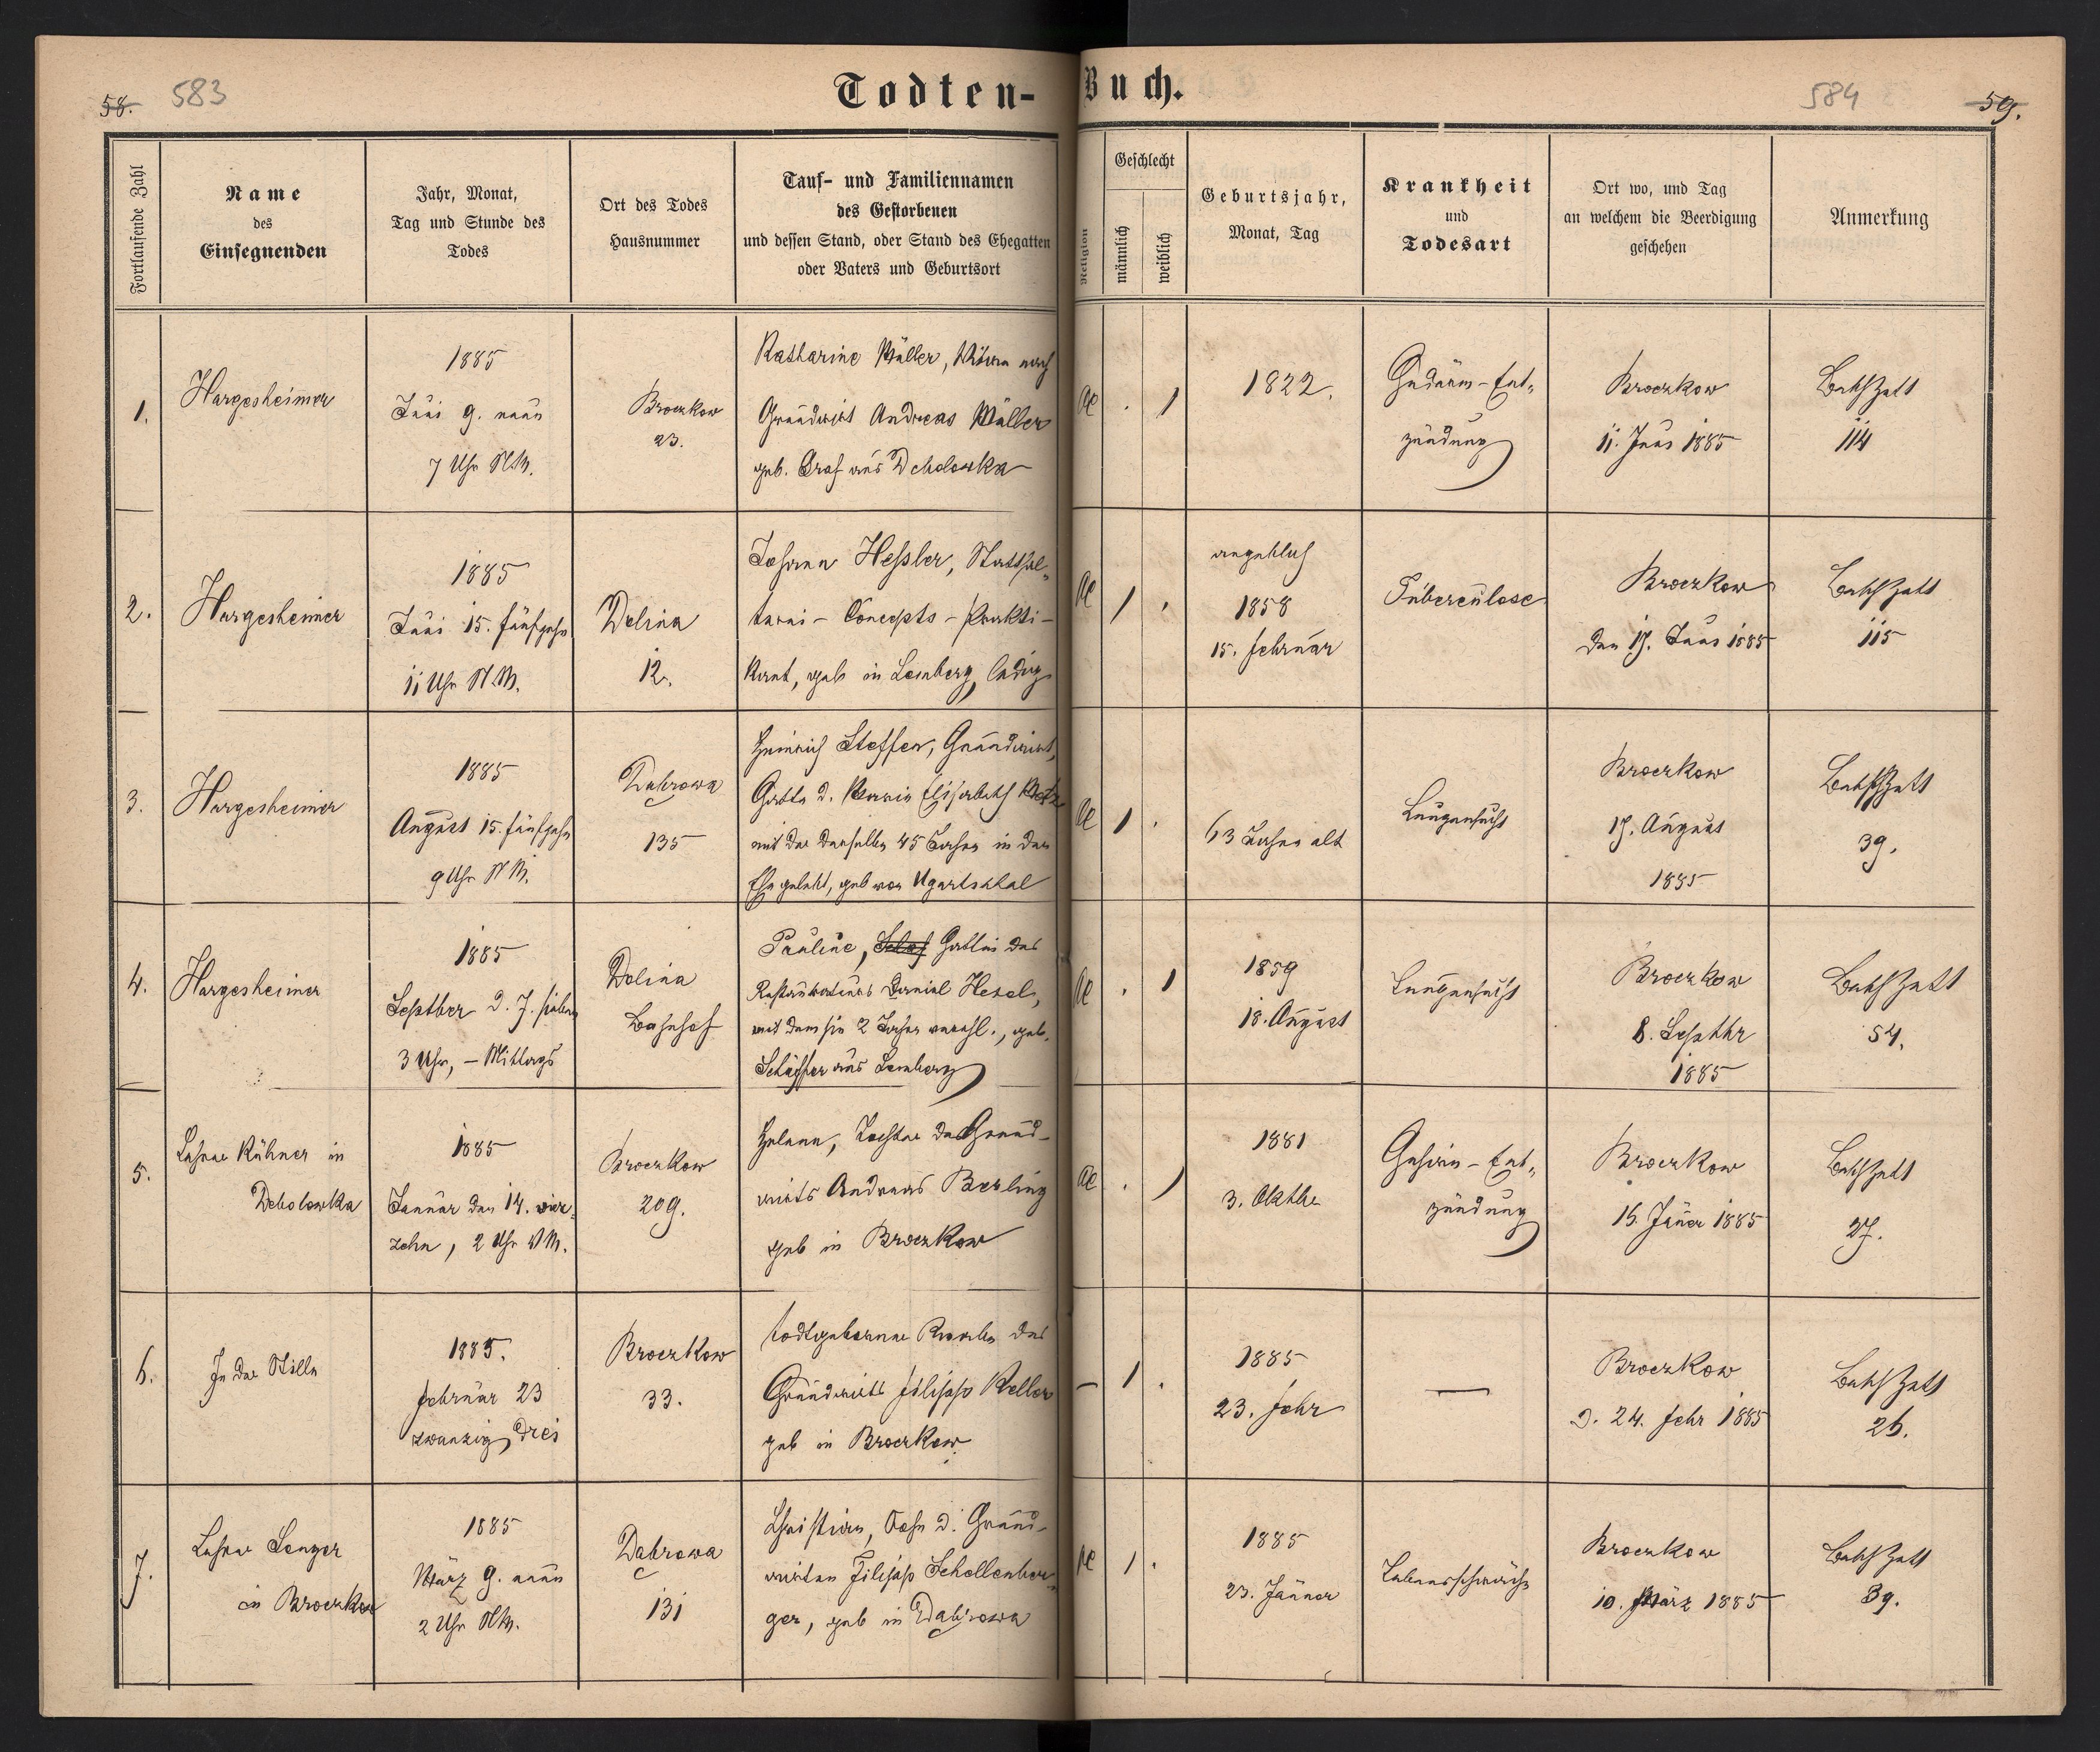 58. 583
Todten-Buch.
584 59.
Fortlaufende Zahl
Name
des
Einsegnenden
Jahr, Monat,
Tag und Stunde des
Todes
Ort des Todes
Hausnummer
Tauf- und Familiennamen
des Gestorbenen
und dessen Stand, oder Stand des Ehegatten
oder Vaters und Geburtsort
Religion
Geschlecht
männlich
weiblich
Geburtsjahr,
Monat, Tag
Krankheit
und
Todesart
Ort wo, und Tag
an welchem die Beerdigung
geschehen
Anmerkung
1.
Hargesheimer
1885
Juni 9. neun
7 Uhr N.M.
Broczkow
23.
Katharine Müller, Witwe nach
Grundwirt Andreas Müller
geb. Graf aus Debolowka
1822.
Gedärm-Ent-
zündung
Broczkow
11. Juni 1885
114
2.
Hargesheimer
1885
Juni 15. fünfzehn
11 Uhr N.M.
Dolina
12.
Johann Hessler, Statthal-
terei-Concepts-Prakti-
kant, geb in Lemberg, ledig
angeblich
1858
15. Februar
Tuberculose
Broczkow
den 17. Juni 1885
115
3.
Hargesheimer
1885
August 15. fünfzehn
9 Uhr N.M.
Dabrowa
135
Heinrich Steffen, Grundwirt,
Gatte d. Maria Elisabeth
mit der derselbe 45 Jahre in der
Ehe gelebt, geb von Ugartsthal
63 Jahre alt
Lungensucht
Broczkow
17. August
1885
39.
4.
Hargesheimer
1885
Septber d. 7. sieben
3 Uhr, - Mittags
Dolina
Bahnhof
Pauline, Gattin des
Restaurateurs Daniel Hesel,
mit dem sie 2 Jahre verehl., geb.
Schäffer aus Lemberg
1859
18. August
Lungensucht
Broczkow
8. Septbr
1885
54.
5.
Lehrer Kühner in
Debolowka
1885
Januar den 14. vier-
zehn, 2 Uhr V.M.
Broczkow
209.
Helene, Tochter des Grund-
wirts Andreas Berling
geb in Broczkow
1881
3. Oktbr
Gehirn-Ent-
zündung
Broczkow
16. Jäner 1885
27.
6.
In der Stille
1885.
Februar 23
zwanzig drei
Broczkow
33.
todtgeborener Knabe des
Grundwirts Filipp Keller
geb in Broczkow
1885
23. Febr
—
Broczkow
d. 24. Febr 1885
26.
7.
Lehrer Senger
in Broczkow
1885
März 9. neun
2 Uhr N.M.
Dabrowa
131
Christian, Sohn d. Grund-
wirten Filipp Schellenber-
ger, geb in Dabrowa
1885
23. Jänner
Lebensschwäche
Broczkow
10. März 1885
39.